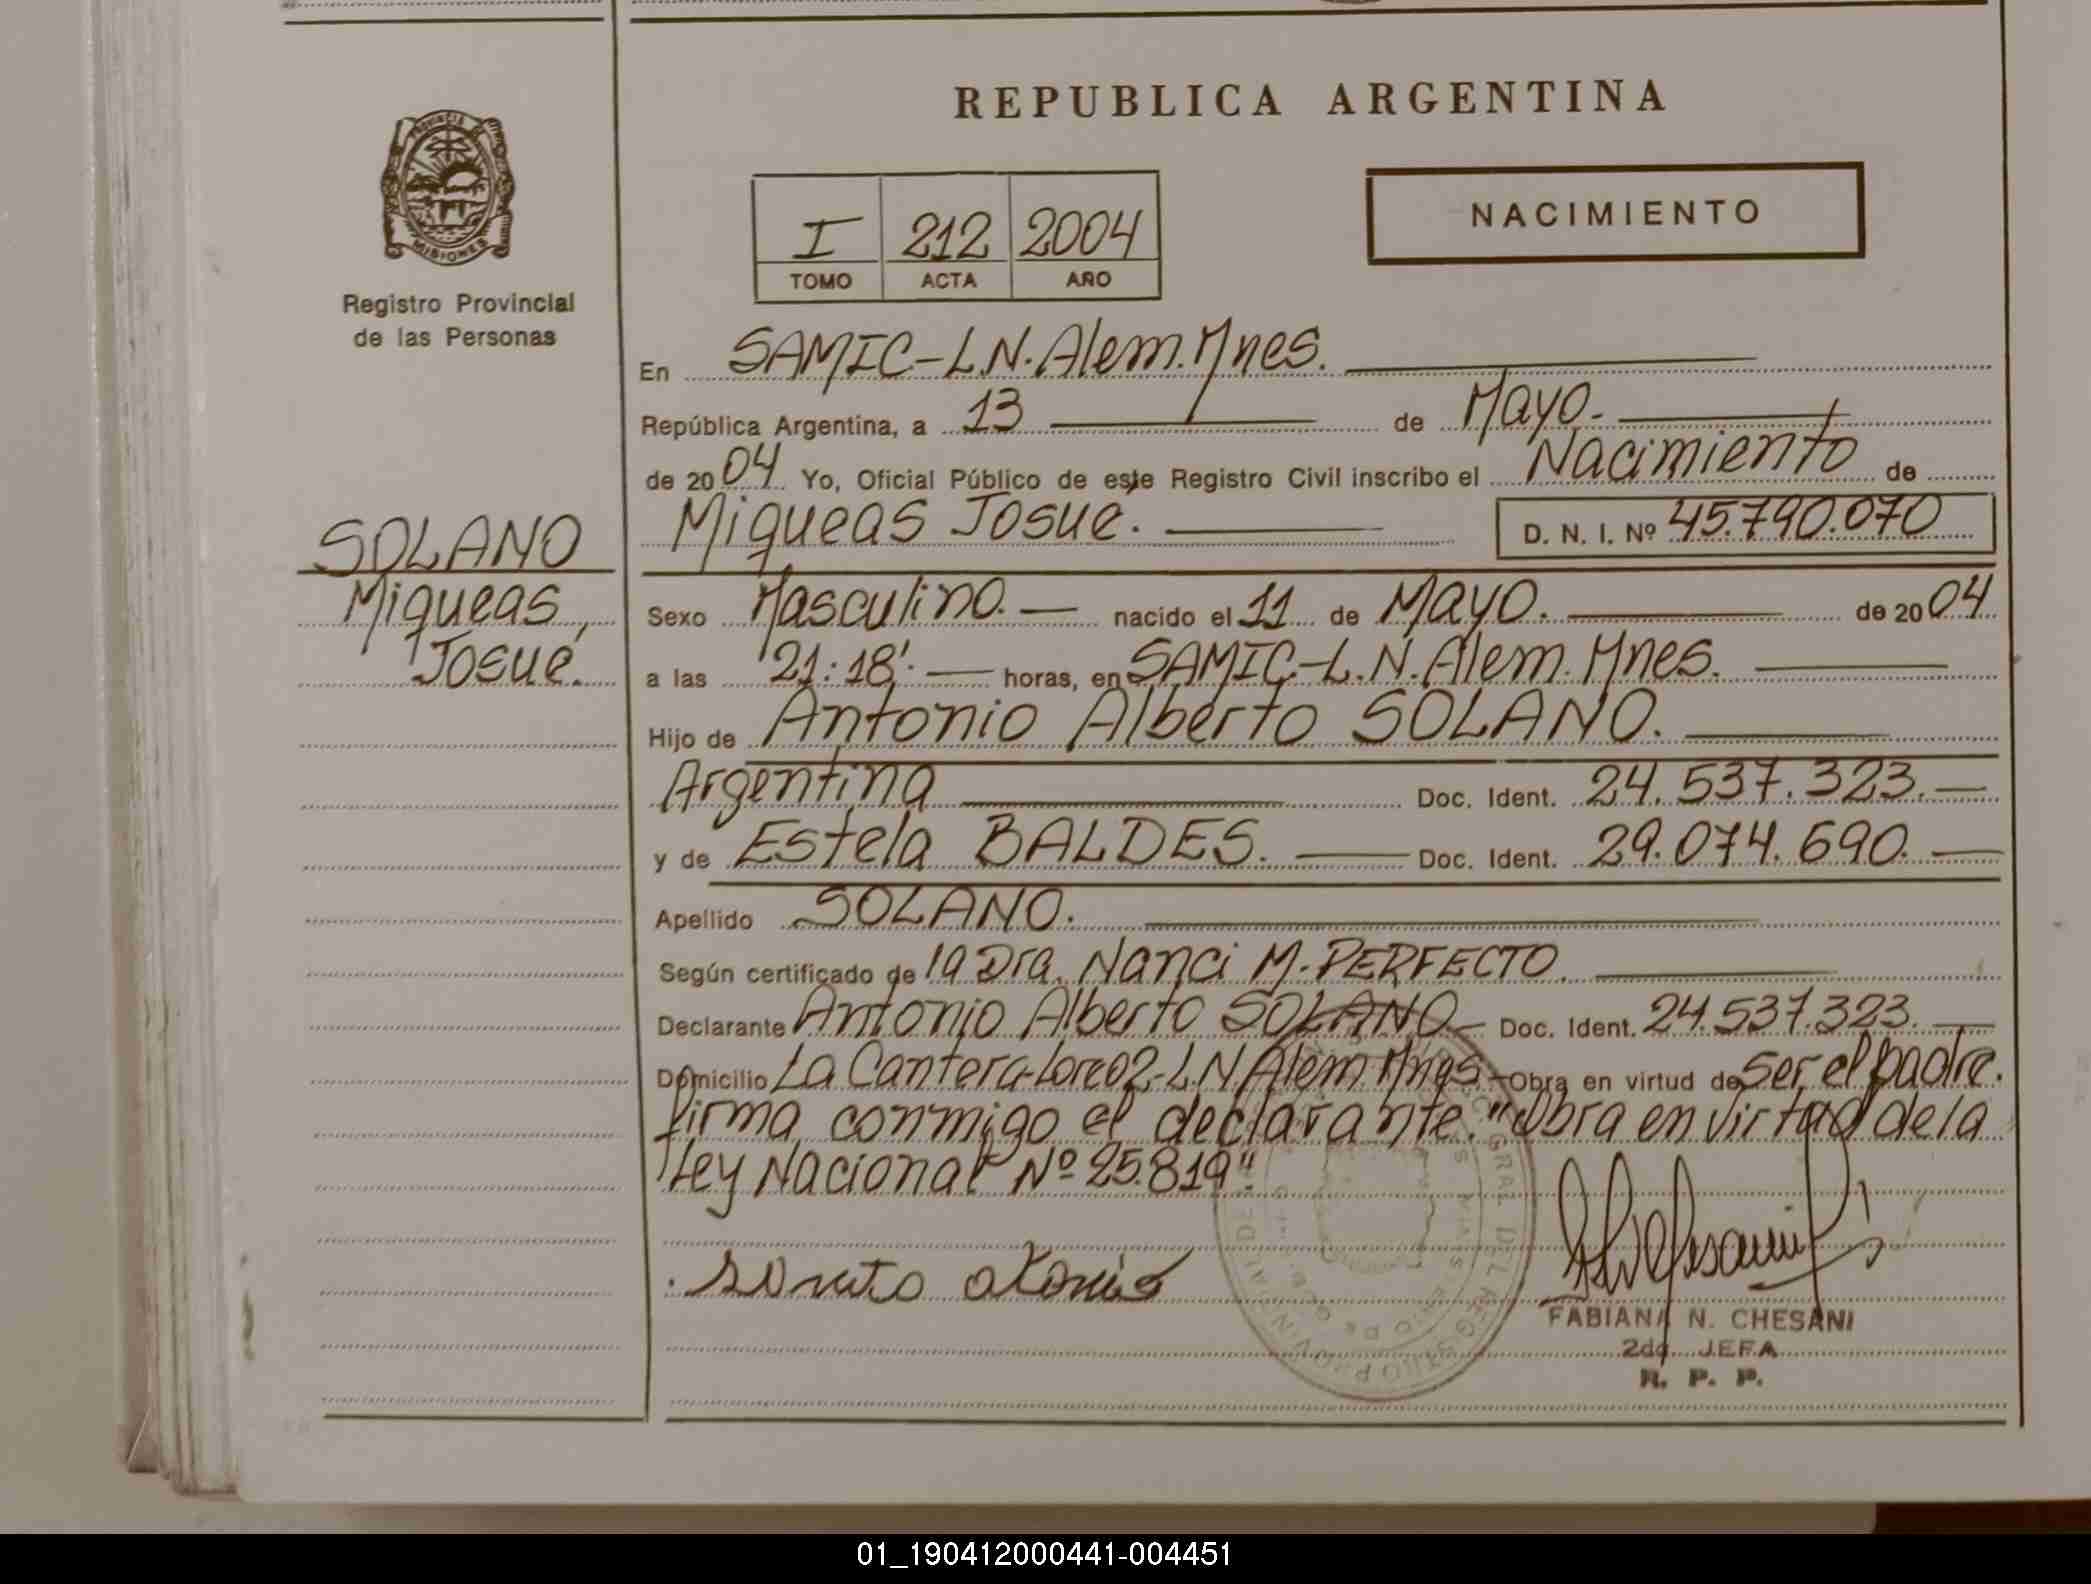 REPUBLICA ARGENTINA
PROVINCIA DE
MISIONES
Registro Provincial
de las Personas
I 212 2004
TOMO ACTA AÑO
NACIMIENTO
En SAMIC-L.N.Alem.Mnes.
República Argentina, a 13 de Mayo.
de 2004 Yo, Oficial Público de este Registro Civil inscribo el Nacimiento de
Miqueas Josué. D. N. I. Nº 45.790.070
SOLANO
Miqueas,
Josué.
Sexo Masculino. nacido el 11 de Mayo. de 2004
a las 21:18'. horas, en SAMIC-L.N.Alem.Mnes.
Hijo de Antonio Alberto SOLANO.
Argentina Doc. Ident. 24.537.323.
y de Estela BALDES. Doc. Ident. 29.074.690.
Apellido SOLANO.
Según certificado de la Dra. Nanci M. PERFECTO.
Declarante Antonio Alberto SOLANO. Doc. Ident. 24.537.323.
Domicilio La Cantera-Loreo2-L.N.Alem.Mnes. Obra en virtud de Ser el padre.
firma conmigo el declarante. "Obra en virtud de la
Ley Nacional Nº 25.819".
FABIANA N. CHESANI
2da. JEFA
R. P. P.
01_190412000441-004451